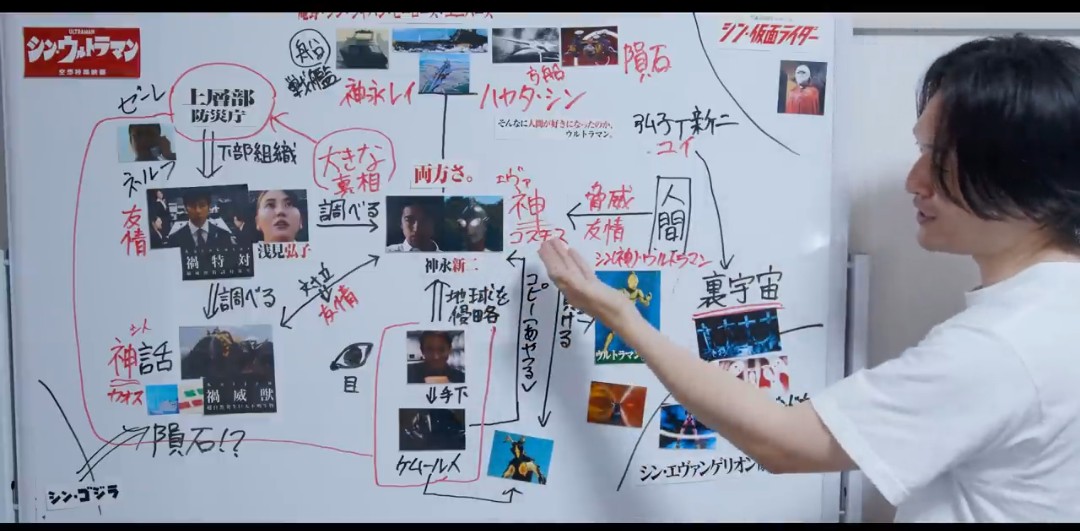 ULTRAMAN
シン・ウルトラマン
空想特撮映画
シン・仮面ライダー
兵台
戦艦
神永レイ
ハヤタ・シン
方舟
隕石
そんなに人間が好きになったのか、
ウルトラマン。
弘子 新二
ユイ
ゼーレ
上層部
防災庁
下部組織
大きな
真相
両方さ。
エヴァ
神
コスモス
脅威
友情
人間
ネルフ
友情
調べる
浅見弘子
禍特対
神永新二
シン(神)・ウルトラマン
裏宇宙
調べる
対立
友情
地球を
侵略
コピー(あやつる)
ウルトラマン
シト
神話
カオス
禍威獣
目
手下
隕石!?
ケムール人
シン・エヴァンゲリオン
シン・ゴジラ